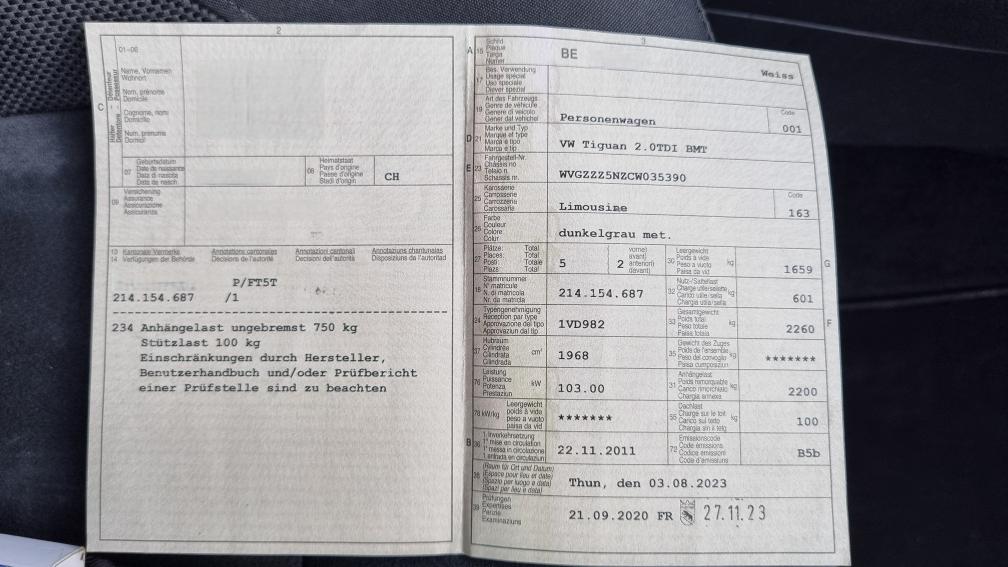 2
01-06
C
Halter
Détenteur
Detentore
Possessur
Name, Vornamen
Wohnort
Nom, prénoms
Domicile
Cognome, nomi
Domicilio
Num, prenums
Domicil
07 Geburtsdatum
Date de naissance
Data di nascita
Data da nasch.
08 Heimatstaat
Pays d'origine
Paese d'origine
Stadi d'origin
CH
09 Versicherung
Assurance
Assicurazione
Assicuranza
13 Kantonale Vermerke Annotations cantonales Annotazioni cantonali Annotaziuns chantunalas
14 Verfügungen der Behörde Décisions de l'autorité Decisioni dell'autorità Disposiziuns da l'autoritad
P/FT5T
214.154.687 /1
234 Anhängelast ungebremst 750 kg
Stützlast 100 kg
Einschränkungen durch Hersteller,
Benutzerhandbuch und/oder Prüfbericht
einer Prüfstelle sind zu beachten
3
A 15 Schild
Plaque
Targa
Numer
BE
Weiss
17 Bes. Verwendung
Usage spécial
Uso speciale
Diever spezial
19 Art des Fahrzeugs
Genre de véhicule
Genere di veicolo
Gener dal vehichel
Personenwagen
Code
001
D 21 Marke und Typ
Marque et type
Marca e tipo
Marca e tip
VW Tiguan 2.0TDI BMT
E 23 Fahrgestell-Nr.
Châssis no
Telaio n.
Schassis nr.
WVGZZZ5NZCW035390
25 Karosserie
Carrosserie
Carrozzeria
Carossaria
Limousine
Code
163
26 Farbe
Couleur
Colore
Colur
dunkelgrau met.
27 Plätze: Total
Places: Total
Posti: Totale
Plazs: Total
5
2
vorne)
avant)
anteriori)
davant)
30 Leergewicht
Poids à vide
Peso a vuoto
Paisa da vid
kg
1659
G
18 Stammnummer
N° matricule
N. di matricola
Nr. da matricla
214.154.687
32 Nutz-/Sattellast
Charge utile/sellette
Carico utile/sella
Chargia utila/sella
kg
601
24 Typengenehmigung
Réception par type
Approvazione del tipo
Approvaziun dal tip
1VD982
33 Gesamtgewicht
Poids total
Peso totale
Paisa totala
kg
2260
F
37 Hubraum
Cylindrée
Cilindrata
Cilindrada
cm³
1968
35 Gewicht des Zuges
Poids de l'ensemble
Peso del convoglio
Paisa cumposiziun
kg
*******
76 Leistung
Puissance
Potenza
Prestaziun
kW
103.00
31 Anhängelast
Poids remorquable
Carico rimorchiato
Chargia annexa
kg
2200
78 kW/kg
Leergewicht
poids à vide
peso a vuoto
paisa da vid
*******
55 Dachlast
Charge sur le toit
Carico sul tetto
Chargia sin il tetg
kg
100
B 36 1. Inverkehrsetzung
1re mise en circulation
1a messa in circolazione
1. entrada en circulaziun
22.11.2011
72 Emissionscode
Code émissions
Codice emissioni
Code d'emissiuns
B5b
38 (Raum für Ort und Datum)
(Espace pour lieu et date)
(Spazio per luogo e data)
(Spazi per lieu e data)
Thun, den 03.08.2023
39 Prüfungen
Expertises
Perizie
Examinaziuns
21.09.2020 FR 27.11.23